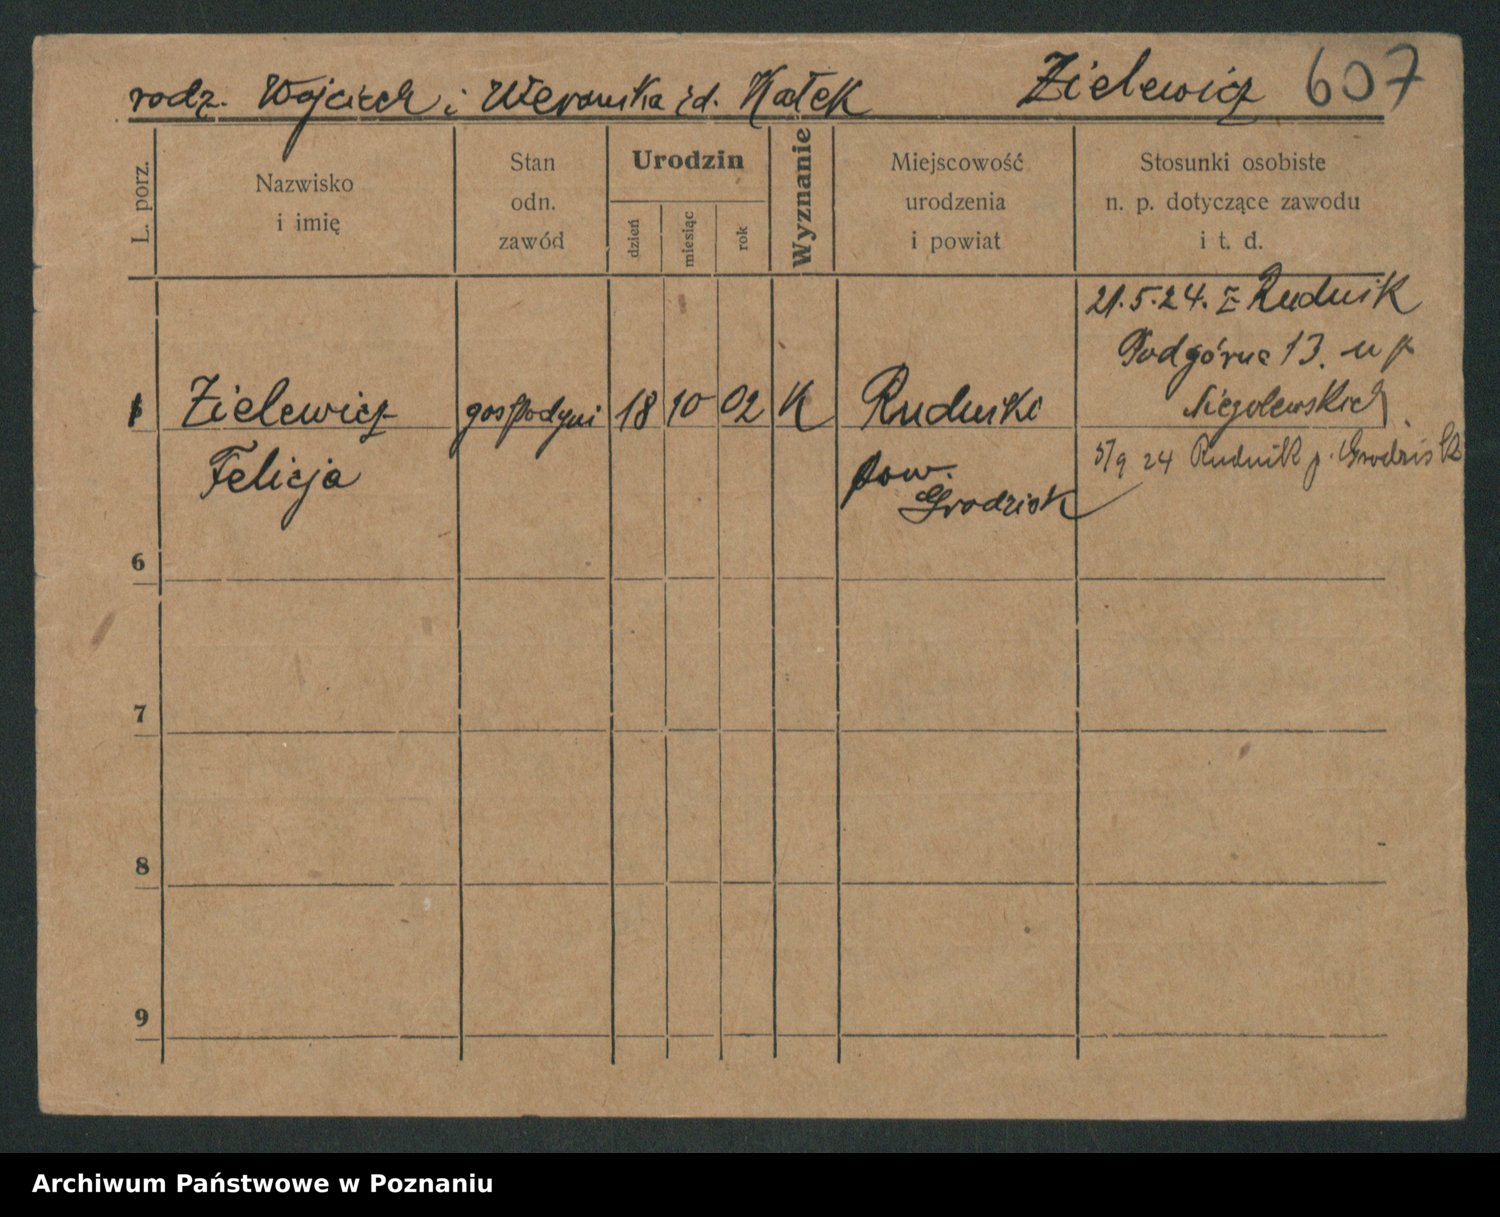 rodz. Wojciech i Weronika zd. Kałek Zielewicz 607
L. porz.
Nazwisko
i imię
Stan
odn.
zawód
Urodzin
dzień
miesiąc
rok
Wyznanie
Miejscowość
urodzenia
i powiat
Stosunki osobiste
n. p. dotyczące zawodu
i t. d.
21.5.24. z Rudnik
Podgórna 13. u p
Niegolewskich
1 Zielewicz gospodyni 18 10 02 K Rudniki
Felicja
pow.
Grodzisk
5/9 24 Rudnik p. Grodzisk
6
7
8
9
Archiwum Państwowe w Poznaniu